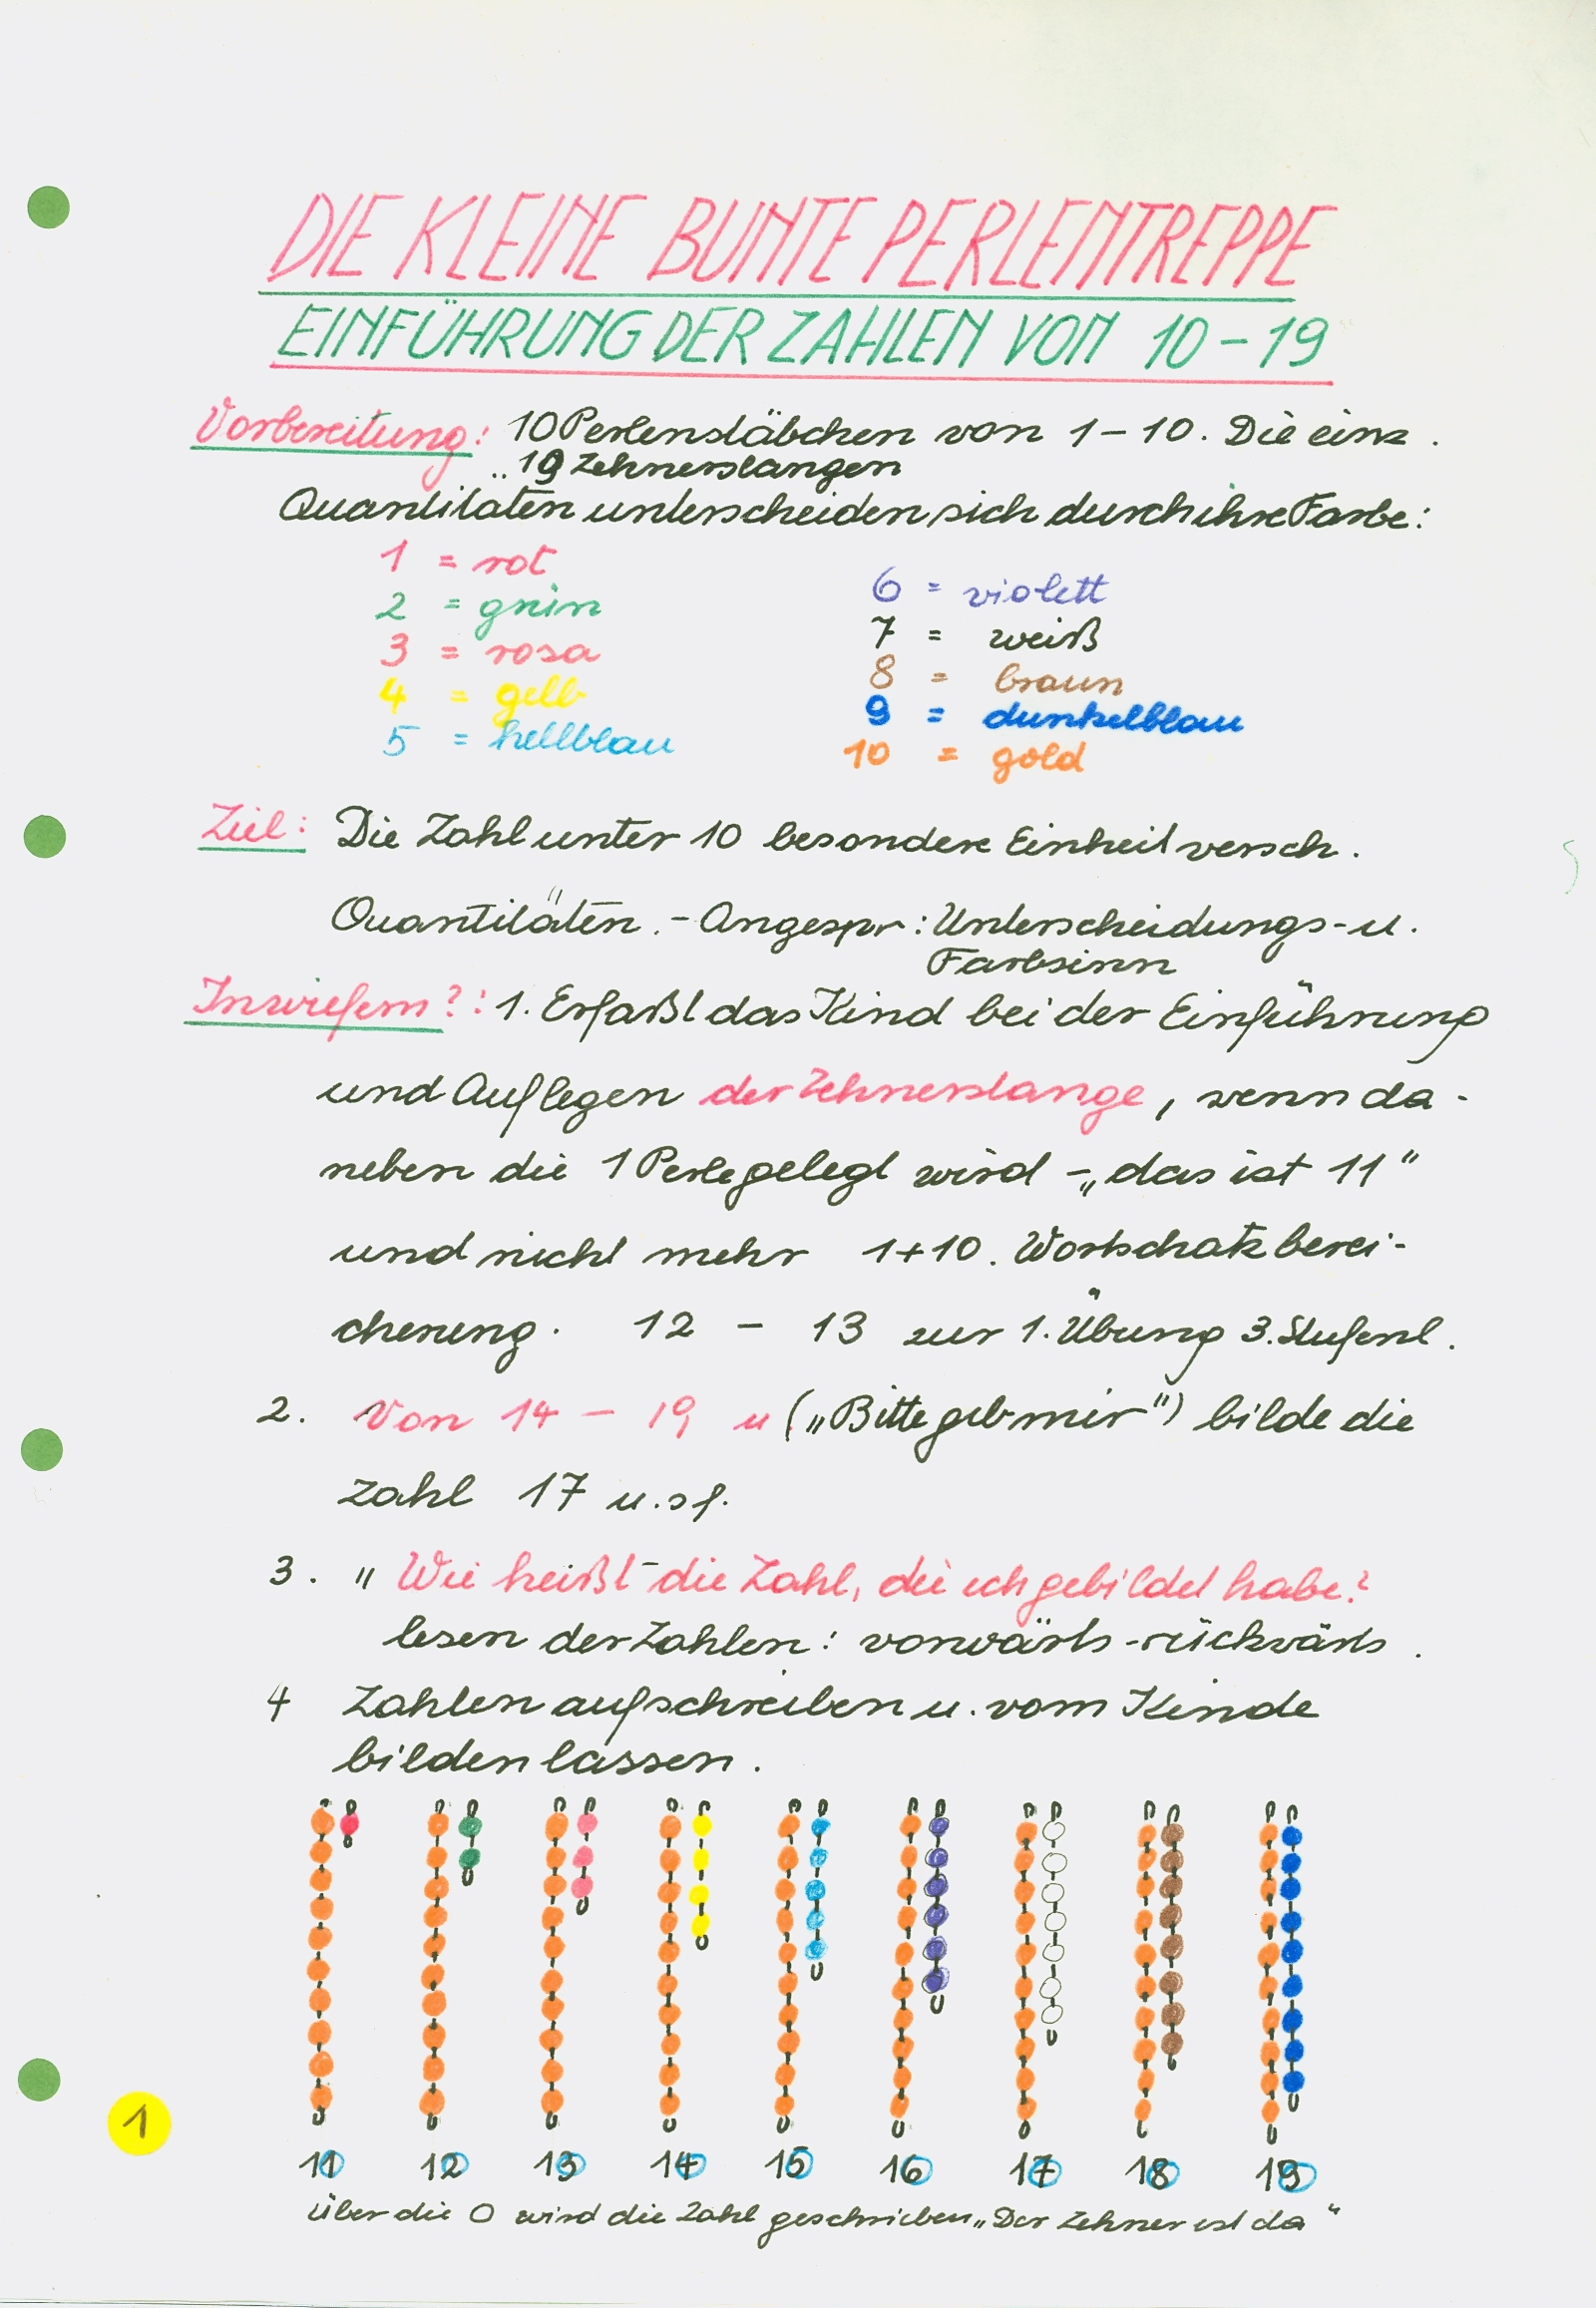 DIE KLEINE BUNTE PERLENTREPPE
EINFÜHRUNG DER ZAHLEN VON 10 - 19
Vorbereitung: 10 Perlenstäbchen von 1 - 10. Die einz.
19 Zehnerstangen
Quantitäten unterscheiden sich durch ihre Farbe:
1 = rot
2 = grün
3 = rosa
4 = gelb
5 = hellblau
6 = violett
7 = weiß
8 = braun
9 = dunkelblau
10 = gold
Ziel: Die Zahl unter 10 besondere Einheit versch.
Quantitäten. - Angespr: Unterscheidungs- u.
Farbsinn
Inwiefern?: 1. Erfaßt das Kind bei der Einführung
und Auflegen der Zehnerstange, wenn da-
neben die 1 Perle gelegt wird - „das ist 11"
und nicht mehr 1+10. Wortschatzberei-
cherung. 12 - 13 zur 1. Übung 3. Stufenl.
2. Von 14 - 19 u („Bitte gib mir") bilde die
Zahl 17 u.sf.
3. " Wie heißt die Zahl, die ich gebildet habe?
lesen der Zahlen: vorwärts - rückwärts.
4 Zahlen aufschreiben u. vom Kinde
bilden lassen.
11 12 13 14 15 16 17 18 19
Über die 0 wird die Zahl geschrieben „Der Zehner ist da"
1